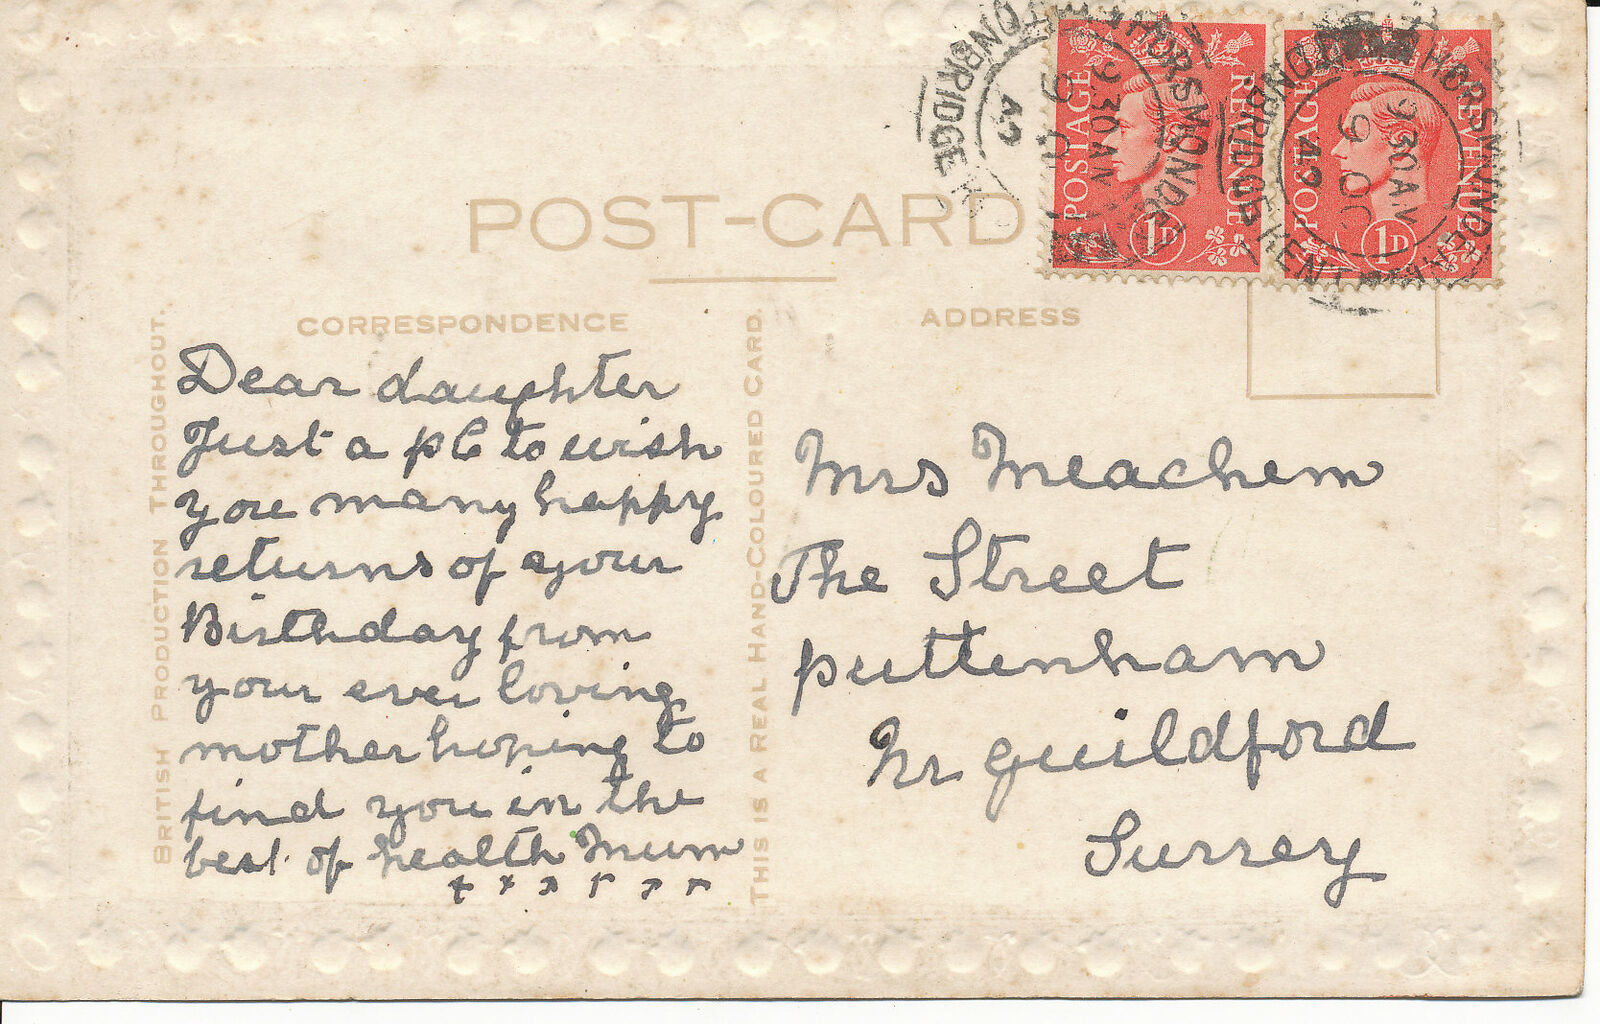 POST-CARD
CORRESPONDENCE
Dear daughter
Just a pc to wish
you many happy
returns of your
Birthday from
your ever loving
mother hoping to
find you in the
best of health Mum
x x x x x x
BRITISH PRODUCTION THROUGHOUT.
THIS IS A REAL HAND-COLOURED CARD.
ADDRESS
Mrs Meachem
The Street
puttenham
Nr guildford
Surrey
POSTAGE REVENUE
1D
POSTAGE REVENUE
1D
HORSMONDEN
TONBRIDGE
9 30 AM
9
HORSMONDEN
TONBRIDGE KENT
9 30 AM
9 OC
49